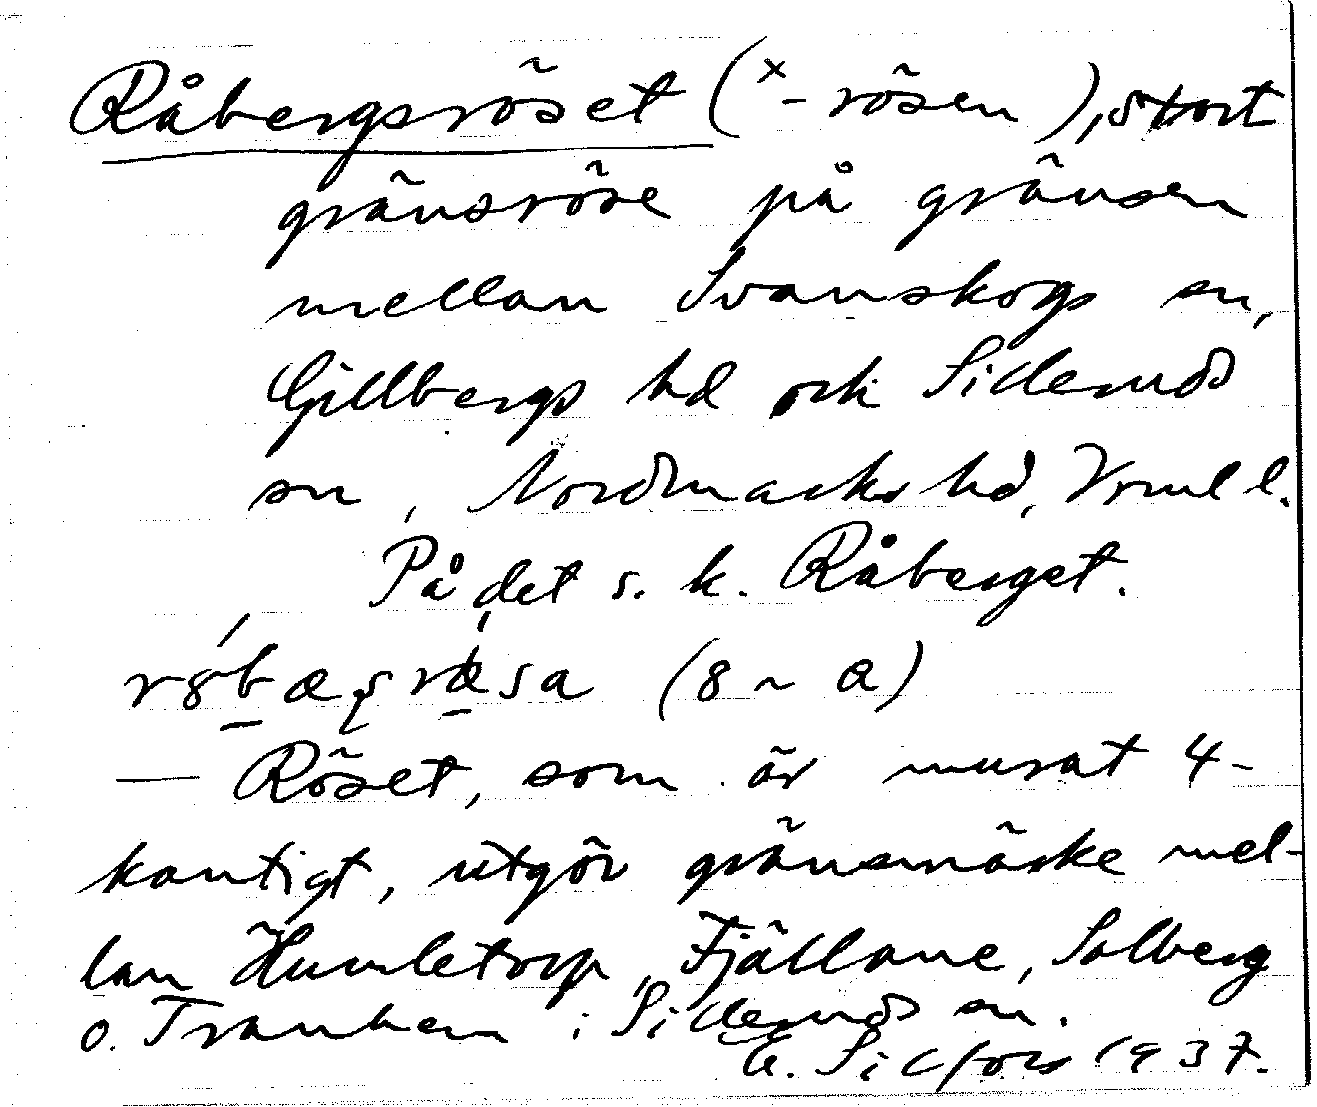 Råbergsröset (x-rösen), stort
gränsröse på gränsen
mellan Svanskogs sn,
Gillbergs hd och Silleruds
sn, Nordmarks hd, Vrml l.
På det s. k. Råberget.
(8 ~ a)
— Röset, som är murat 4-
kantigt, utgör gränsmärke mel-
lan Humletorp, Fjällane, Solberg
o. Tranhem i Silleruds sn.
E. Silfors 1937.